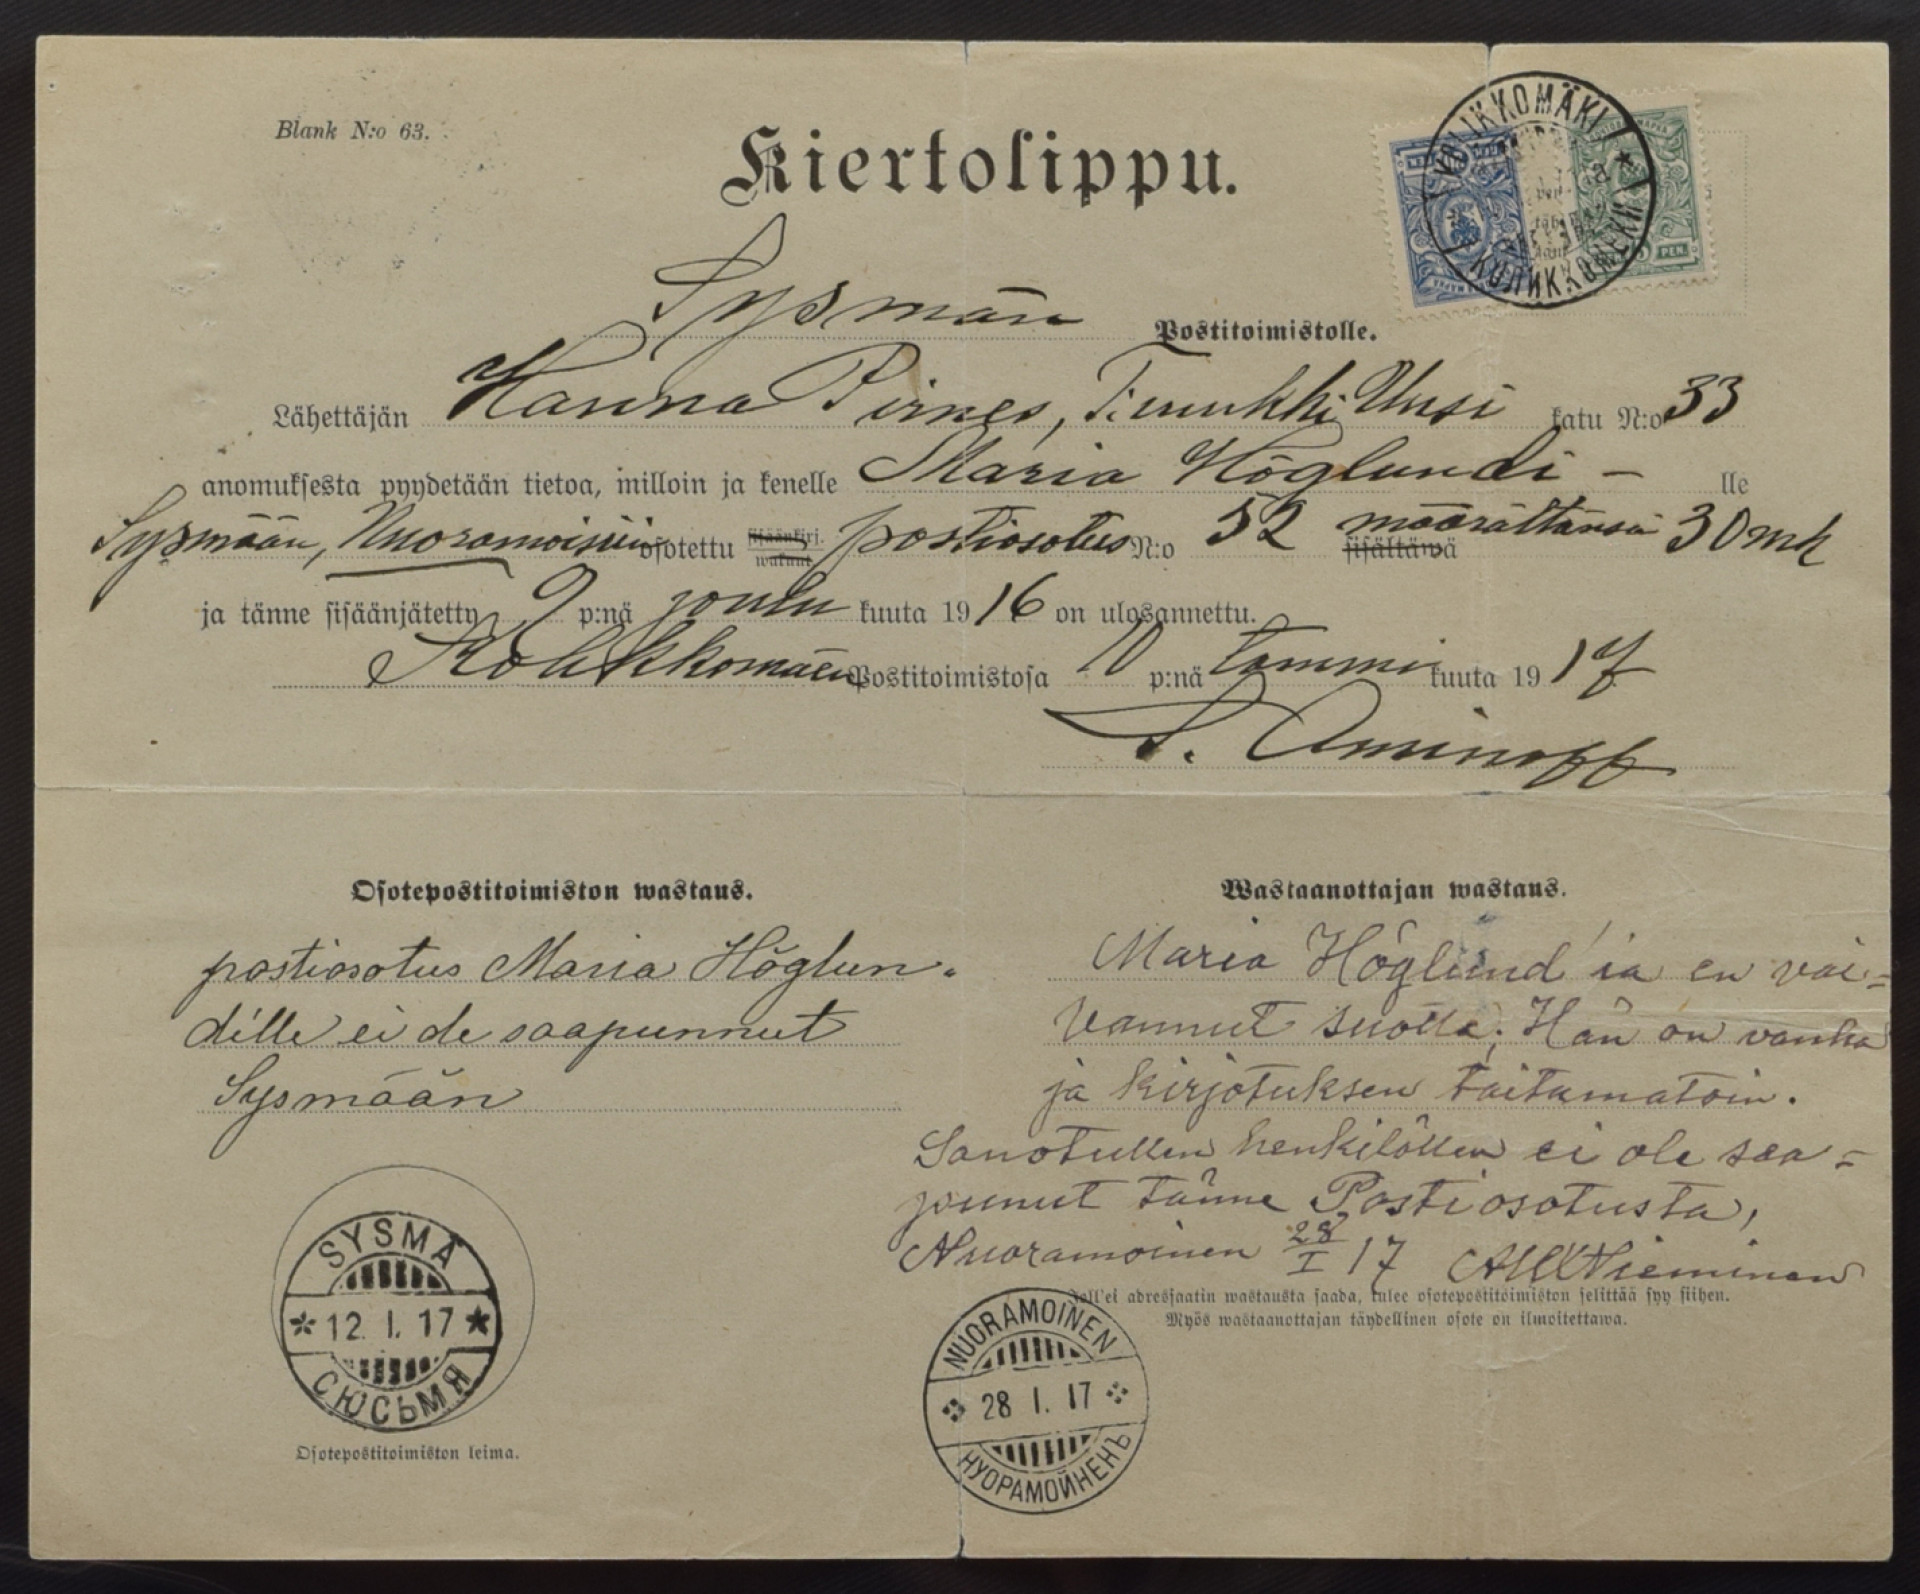 Blank N:o 63.
Kiertolippu.
KOLIKKOMÄKI
PEN.
Sysmän Postitoimistolle.
Lähettäjän Hanna Pirnes, Uusi katu N:o 33
anomuksesta pyydetään tietoa, milloin ja kenelle Maria Höglundi – lle
Sysmään, Nuoramoisiin osotettu sisäänkirj. wakuut. postiosotus N:o 52 sisältäwä määrältänsä 30 mk
ja tänne sisäänjätetty 9 p:nä joulu kuuta 1916 on ulosannettu.
Kolikkomäen Postitoimistosa 10 p:nä tammi kuuta 1917
S. Aminoff
Osotepostitoimiston wastaus.
postiosotus Maria Höglun-
dille ei ole saapunnut
Sysmään
SYSMÄ
12. I. 17
СЮСЬМЯ
Osotepostitoimiston leima.
Wastaanottajan wastaus.
Maria Höglund'ia en vai=
vannut suotta; Hän on vanha
ja kirjotuksen taitamatoin.
Sanotullen henkilöllen ei ole saa=
punnut tänne Postiosotusta,
Nuoramoinen 28/I 17 Nieminen
Joll'ei adressaatin wastausta saada, tulee osotepostitoimiston selittää syy siihen.
Myös wastaanottajan täydellinen osote on ilmoitettawa.
NUORAMOINEN
28 I. 17
НУОРАМОЙНЕНЪ